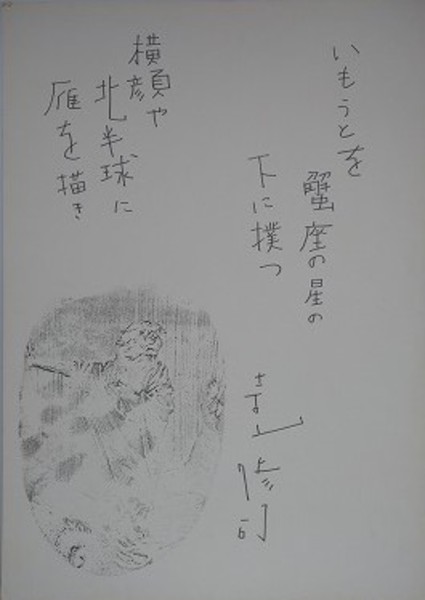 いもうとを
蟹座の星の
下に撲つ
寺山修司
横顔や
北半球に
雁を描き